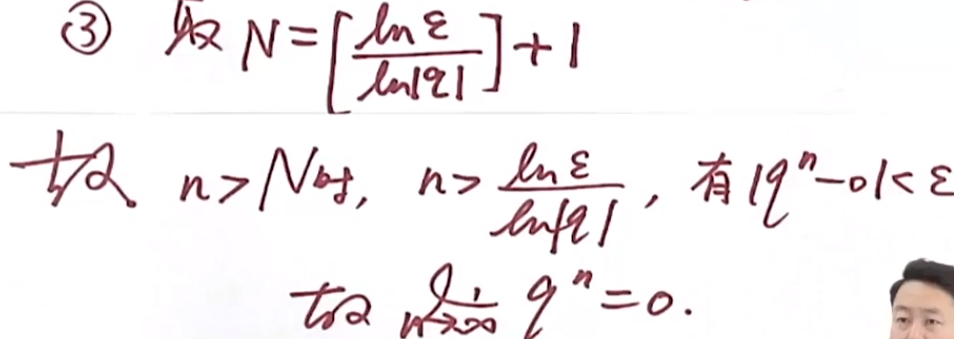 ③ 取 N=[ln ε/ln|q|]+1
故 n>N时, n> ln ε/ln|q| , 有|qⁿ-0|<ε
故 lim n→∞ qⁿ=0.